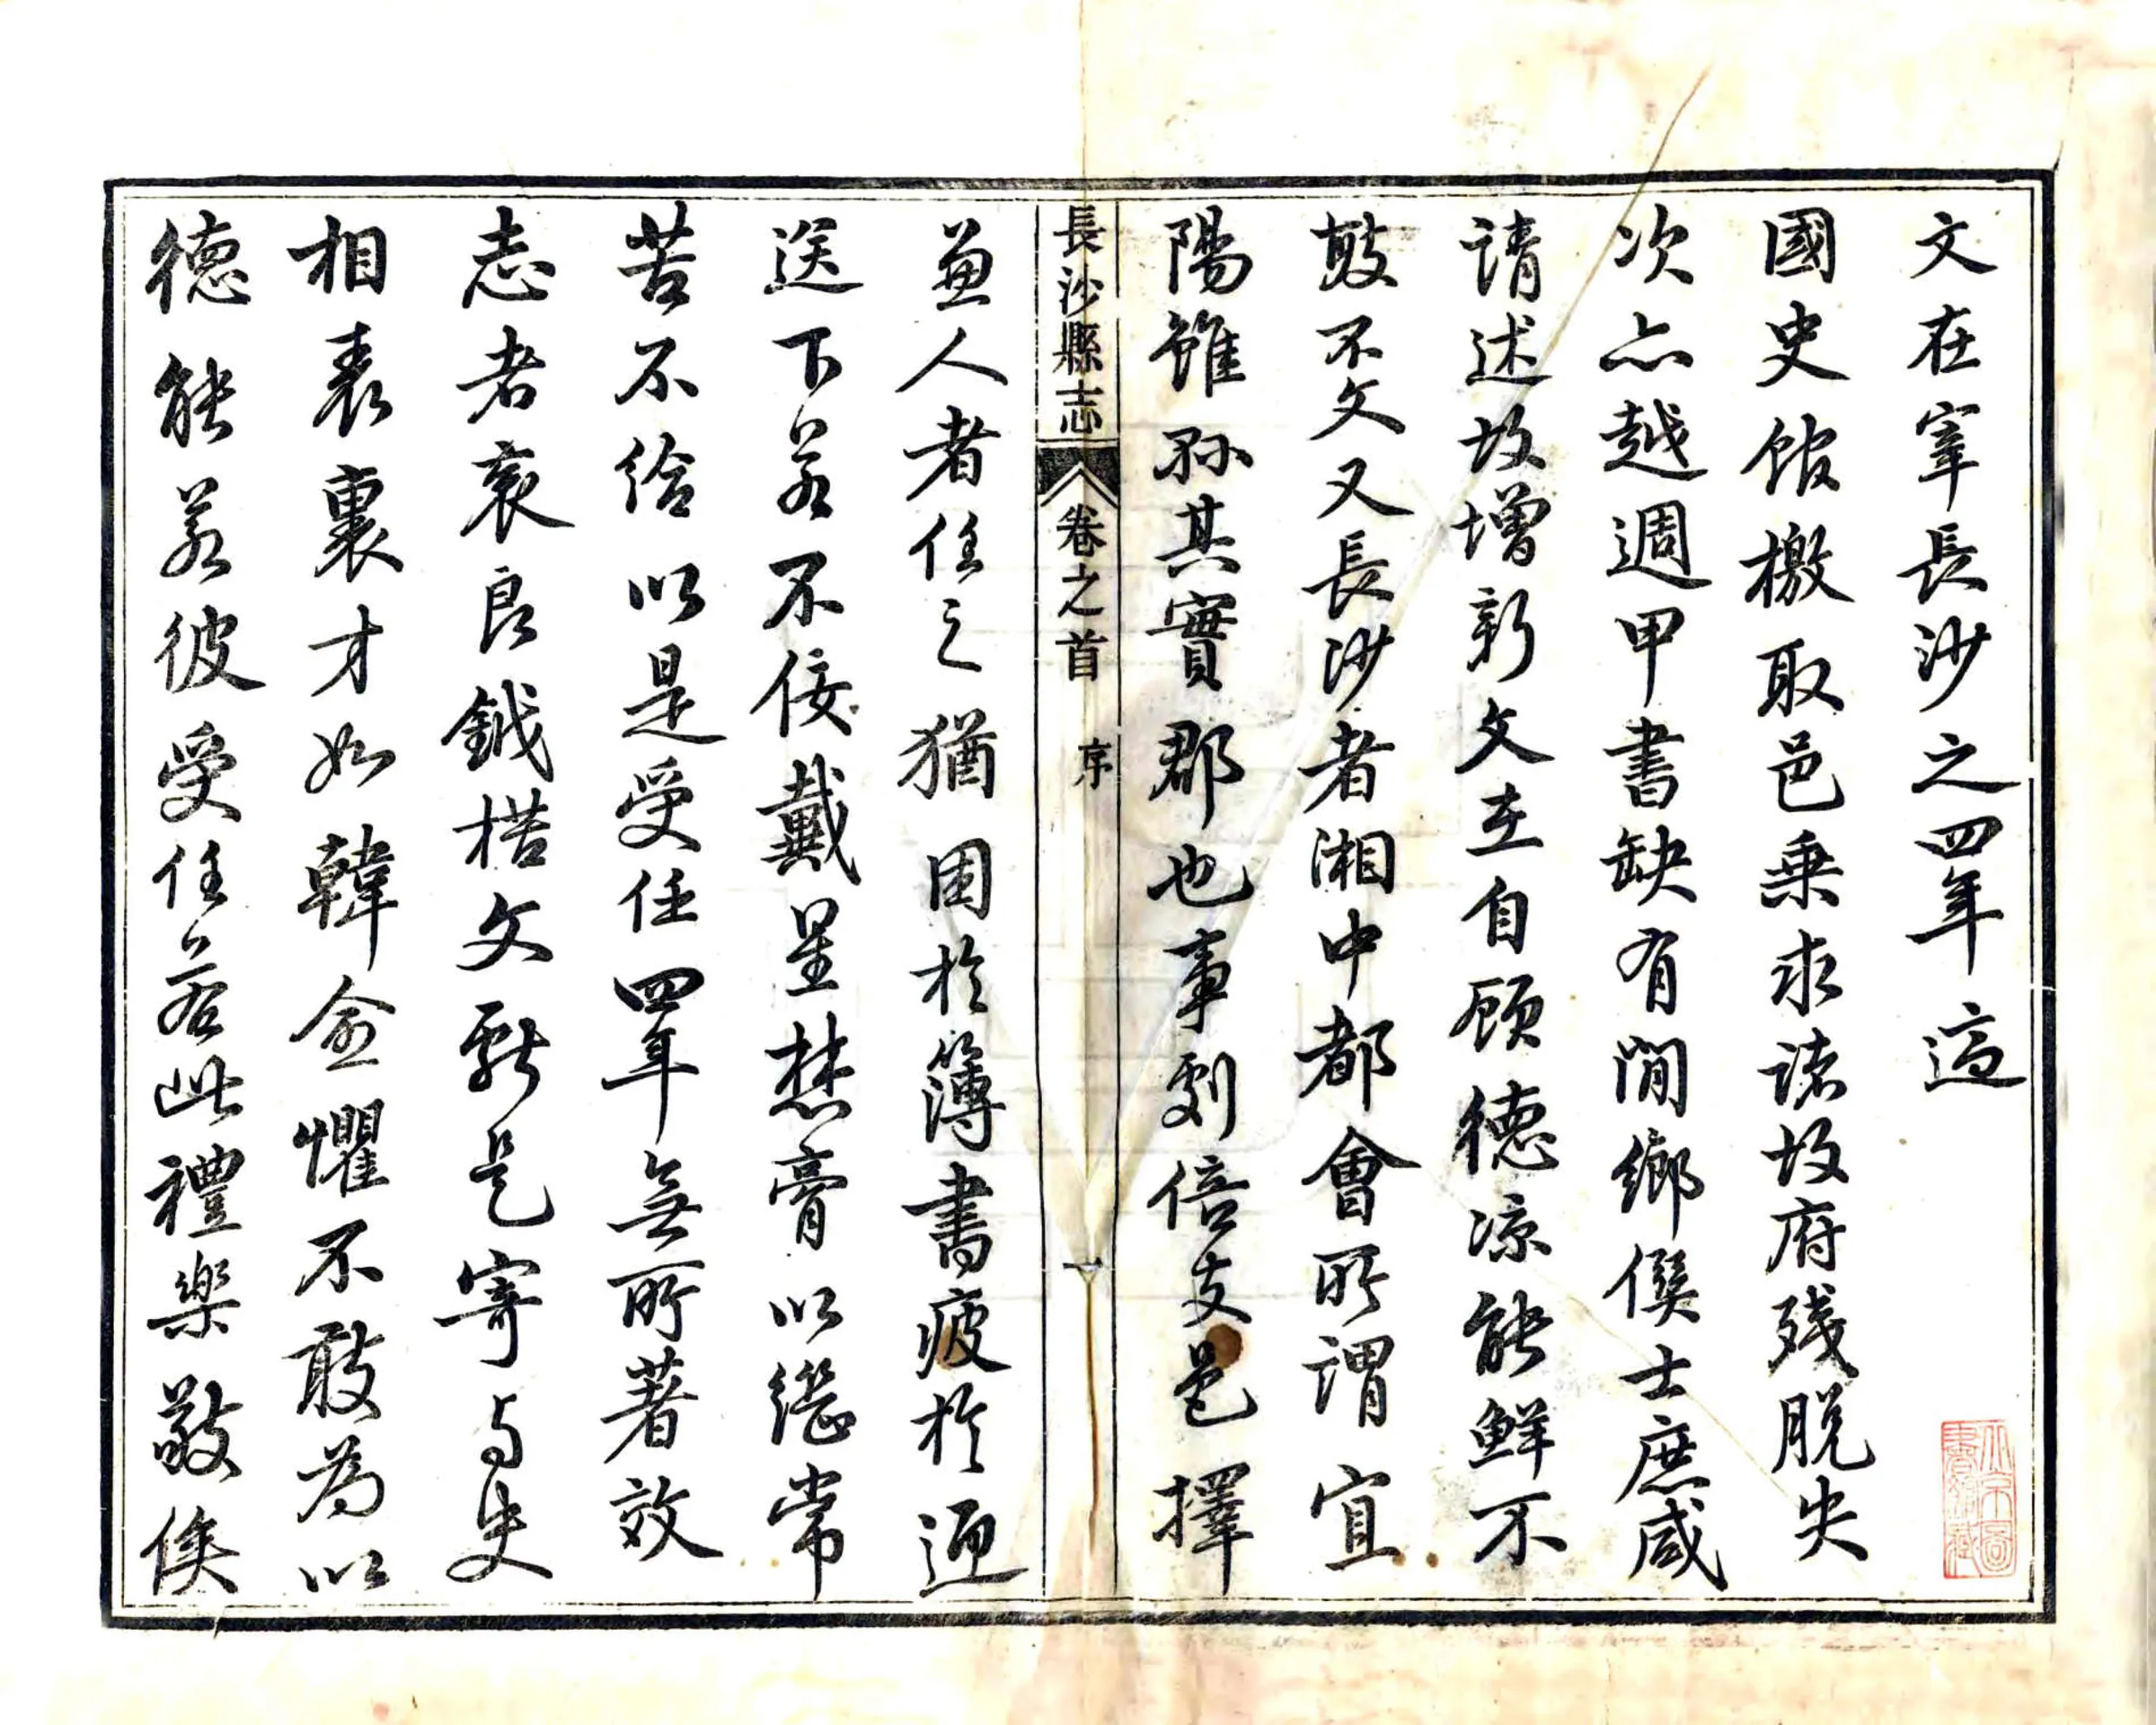 文在宰長沙之四年適
國史館檄取邑乘求諸故府殘脫失
次亦越週甲書缺有間鄉僎士庶咸
請述故增新文在自顧德凉能鮮不
敢不文又長沙者湘中都會所謂宜
陽雖縣其實郡也事劇倍支邑擇
長沙縣志 卷之首 序
兼人者任之猶困於簿書疲於迎
送下若不佞戴星焚膏以繼常
苦不給以是受任四年無所著效
志者衮良鉞楛文獻是寄与史
相表裏才如韓愈懼不敢為以
德能若彼受任若此禮樂敬俟